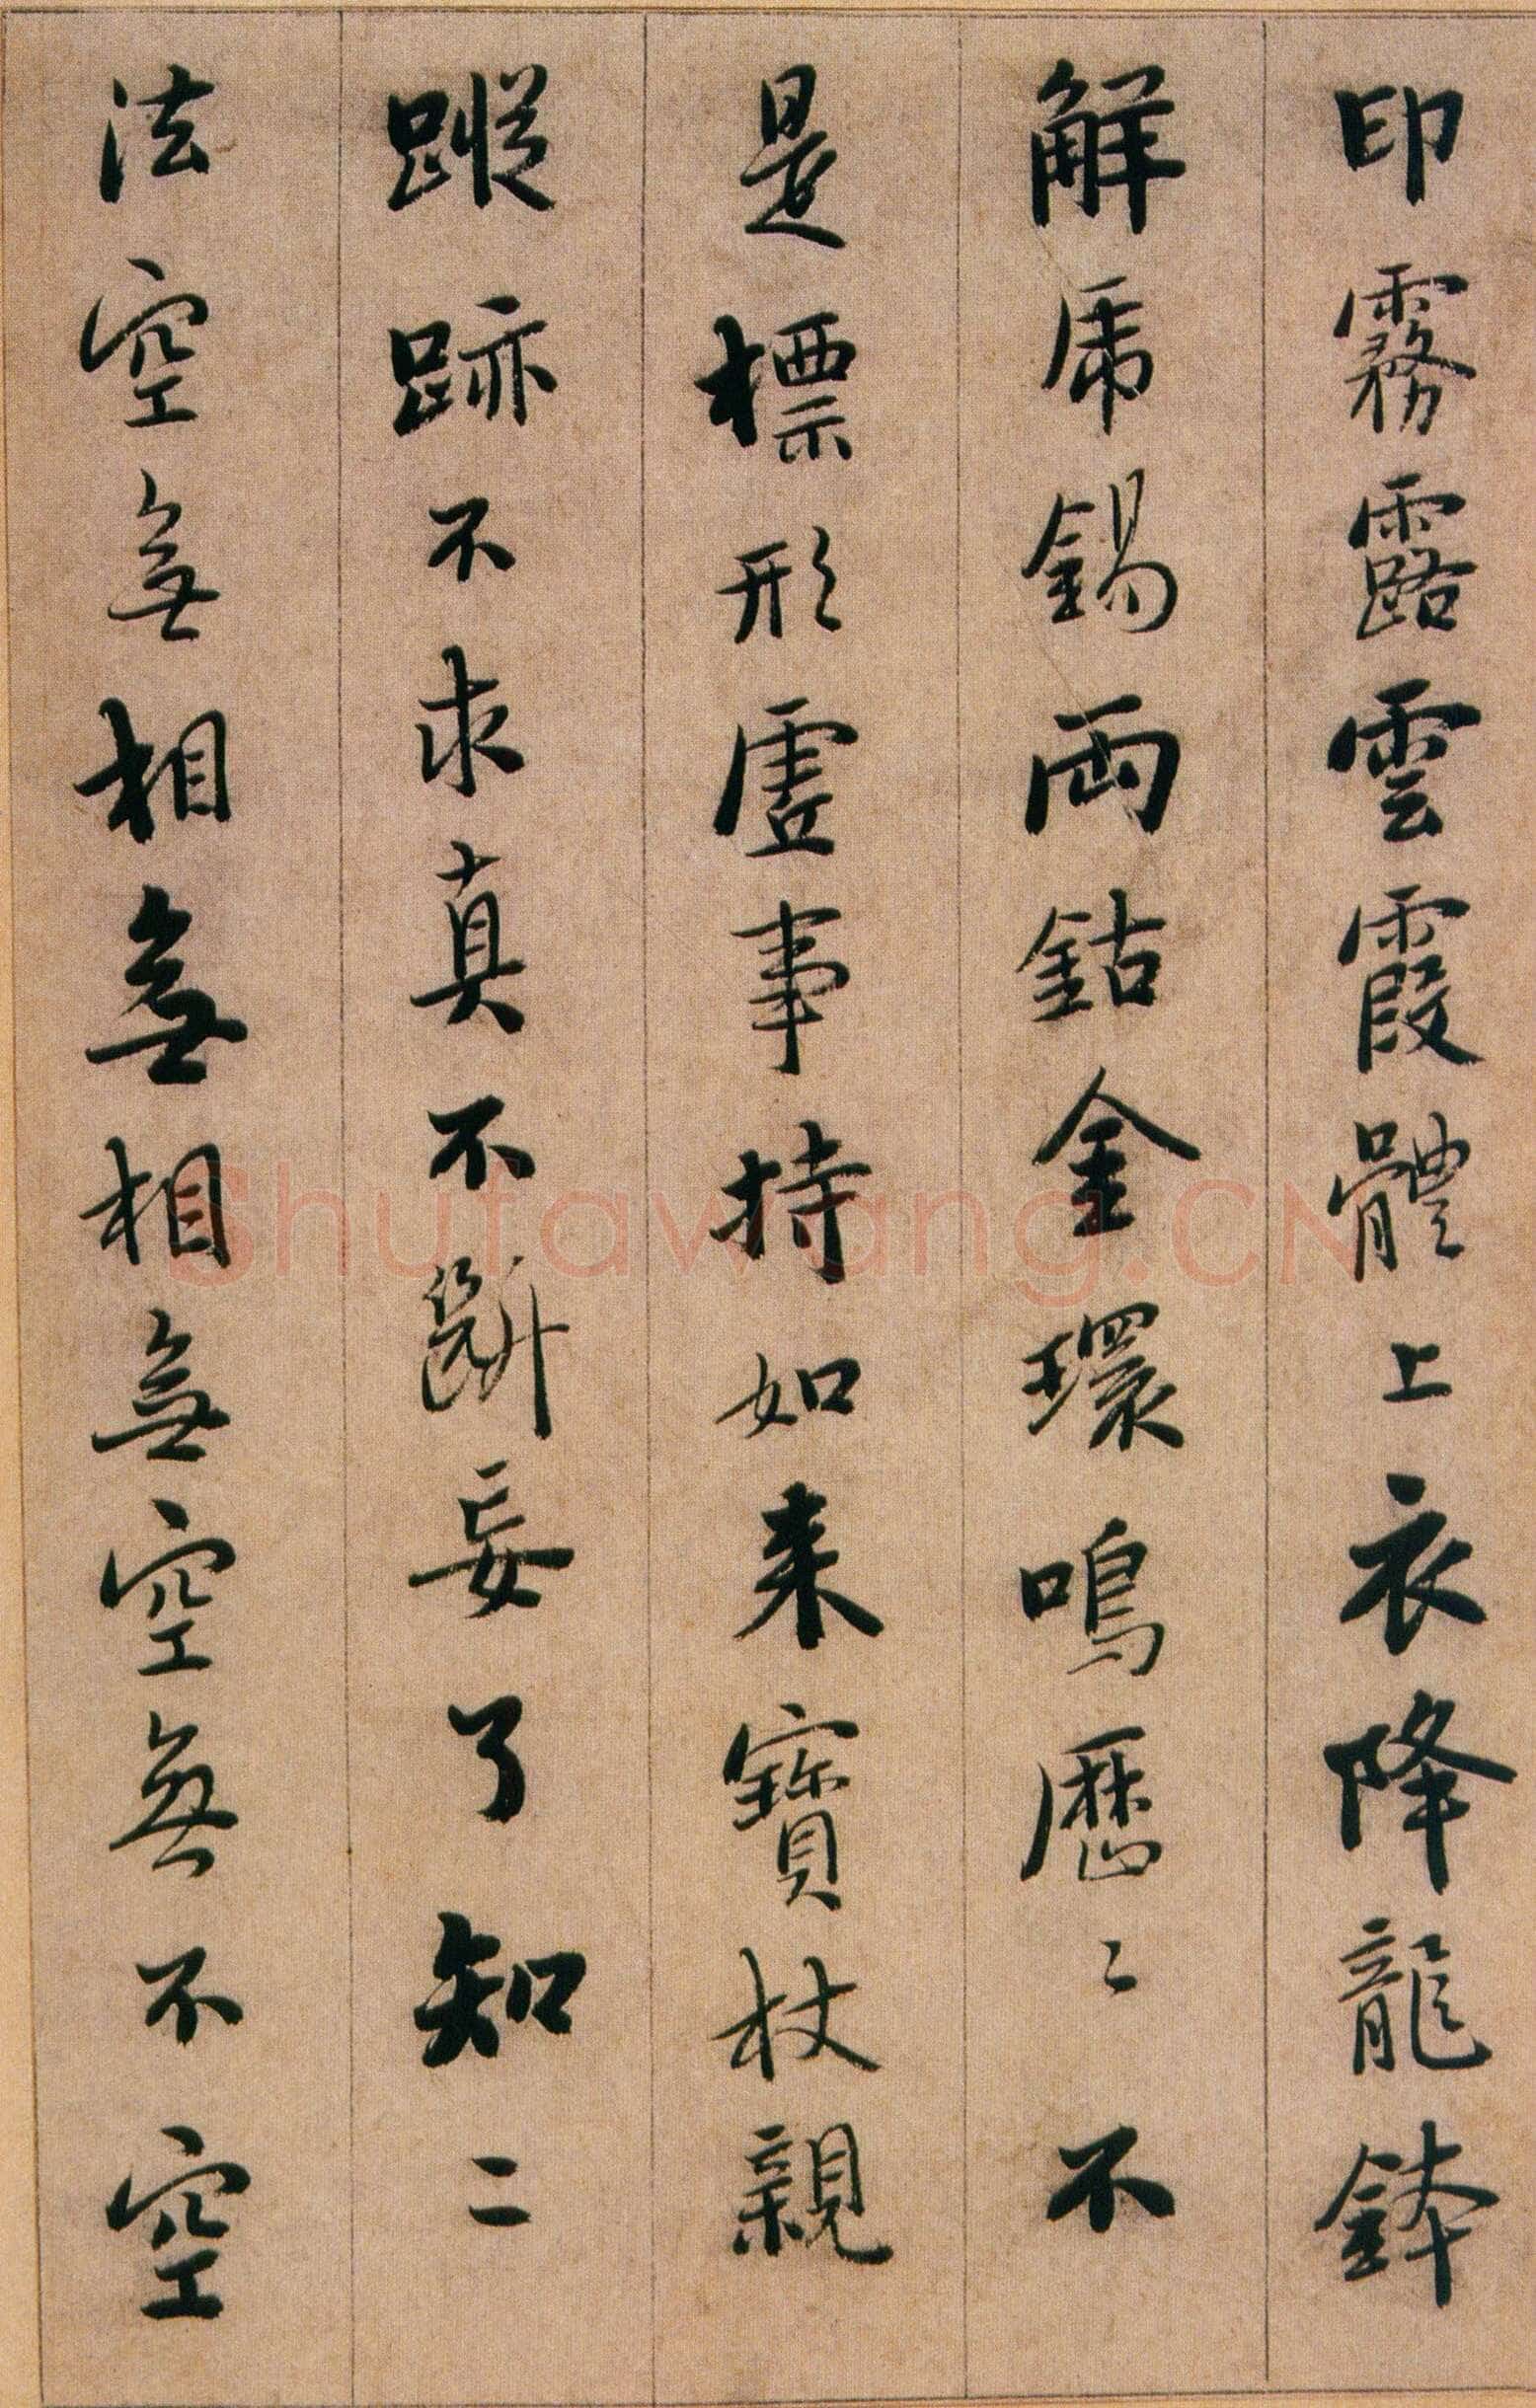 印霧露雲霞體上衣降龍鉢
解虎錫兩鈷金環鳴歷〻不
是標形虛事持如来寶杖親
蹤跡不求真不斷妄了知二
法空無相無相無空無不空
Shufawang.CN